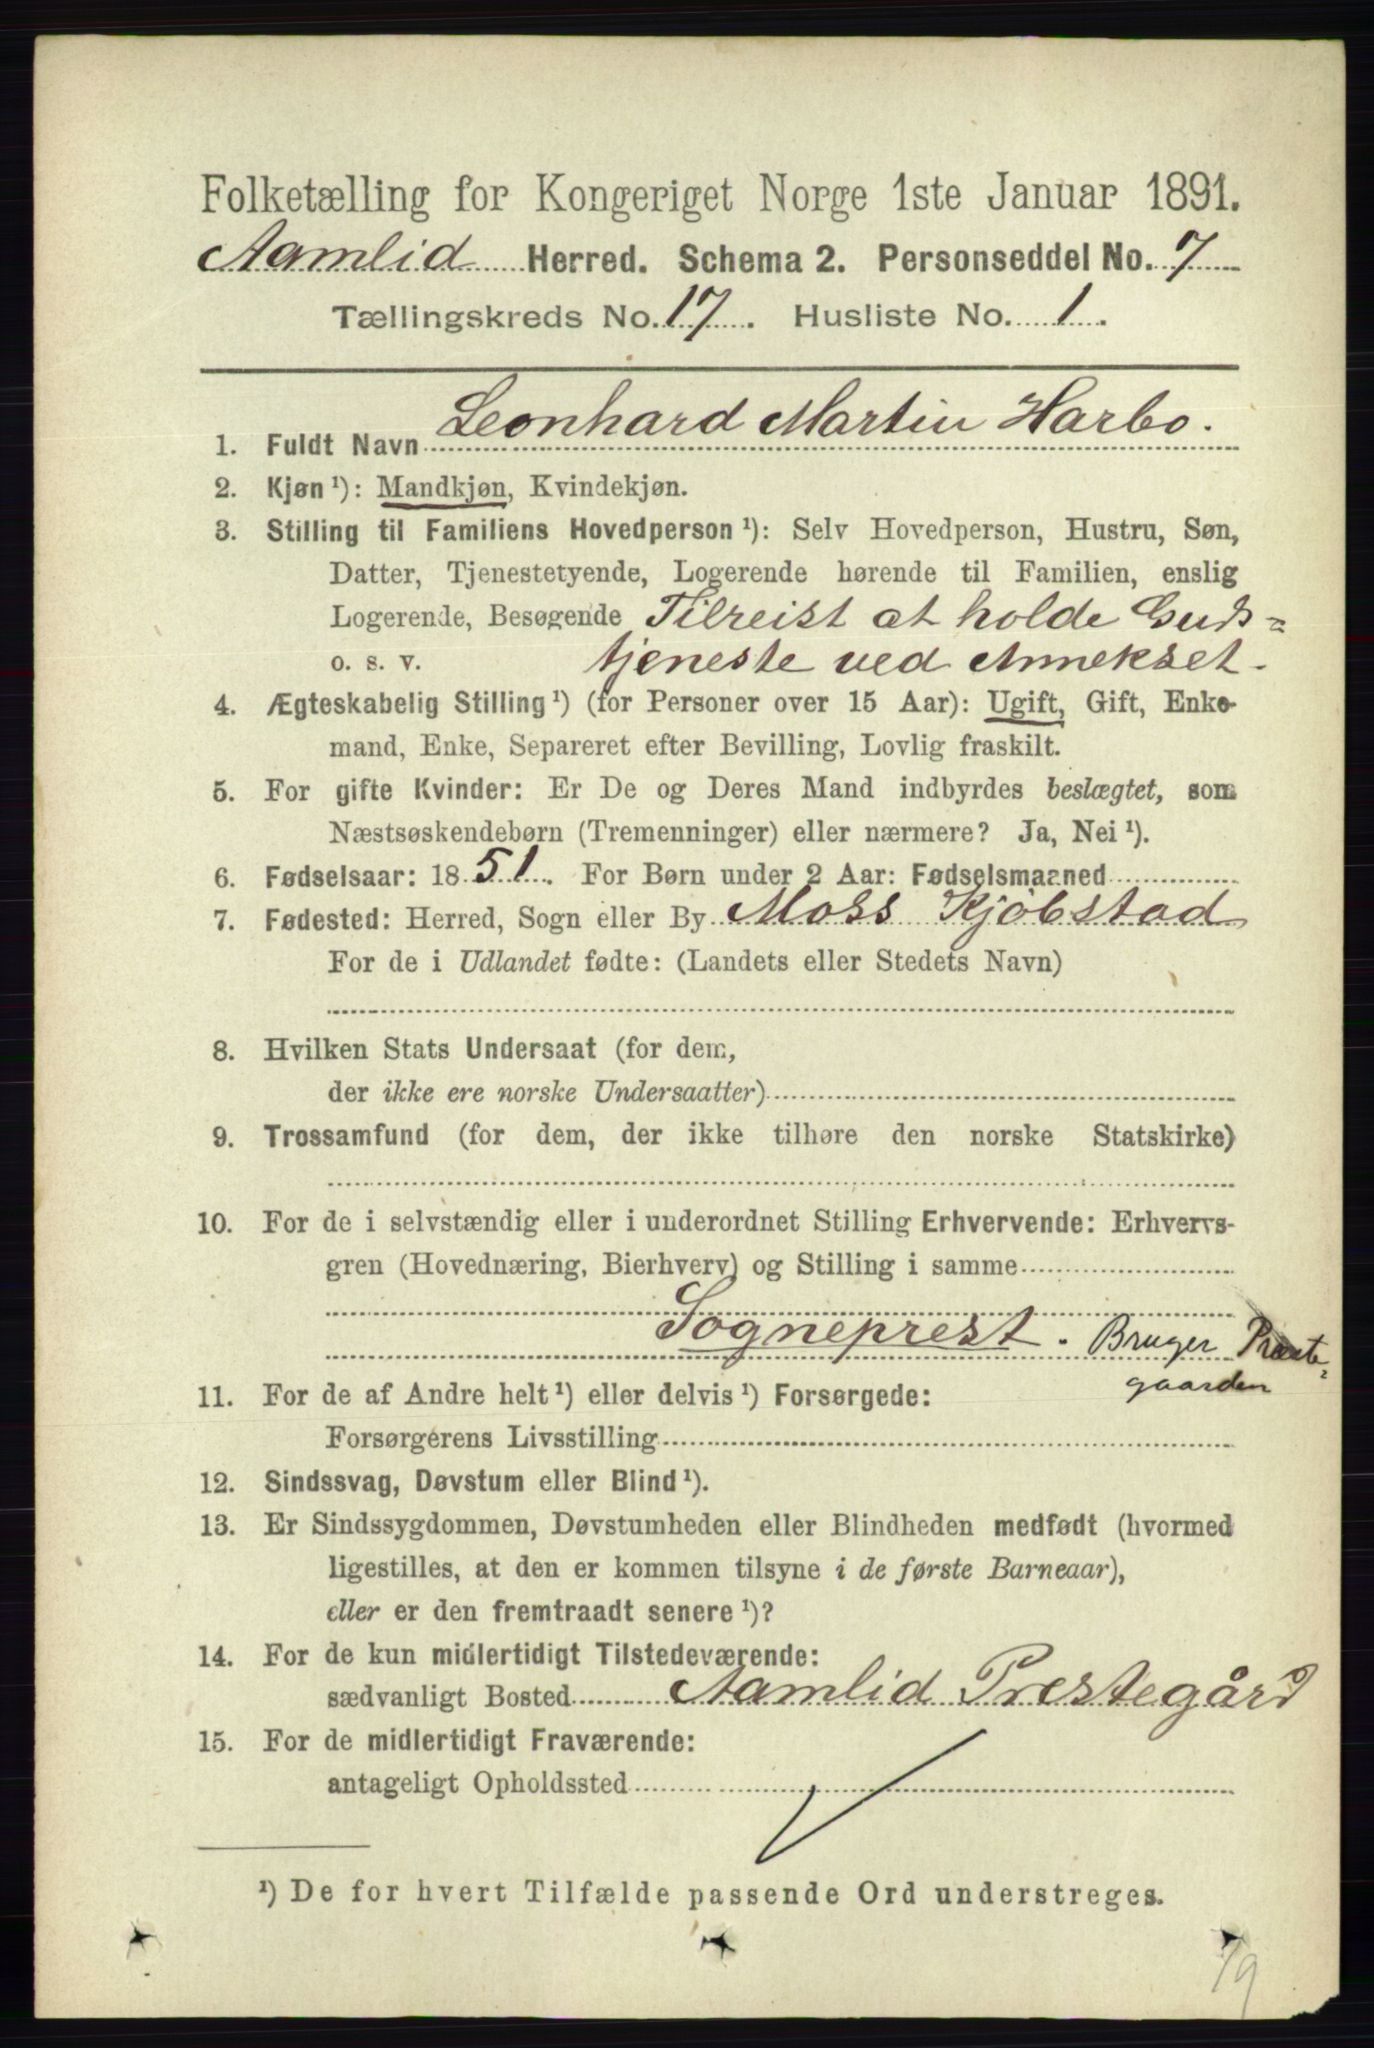 Folketælling for Kongeriget Norge 1ste Januar 1891.
Aamlid Herred. Schema 2. Personseddel No. 7
Tællingskreds No. 17. Husliste No. 1.
1. Fuldt Navn Leonhard Martin Harbo.
2. Kjøn ¹): Mandkjøn, Kvindekjøn.
3. Stilling til Familiens Hovedperson ¹): Selv Hovedperson, Hustru, Søn,
Datter, Tjenestetyende, Logerende hørende til Familien, enslig
Logerende, Besøgende Tilreist at holde Guds=
o. s. v. tjeneste ved Annekset.
4. Ægteskabelig Stilling ¹) (for Personer over 15 Aar): Ugift, Gift, Enke-
mand, Enke, Separeret efter Bevilling, Lovlig fraskilt.
5. For gifte Kvinder: Er De og Deres Mand indbyrdes beslægtet, som
Næstsøskendebørn (Tremenninger) eller nærmere? Ja, Nei ¹).
6. Fødselsaar: 1851. For Børn under 2 Aar: Fødselsmaaned
7. Fødested: Herred, Sogn eller By Moss Kjöbstad
For de i Udlandet fødte: (Landets eller Stedets Navn)
8. Hvilken Stats Undersaat (for dem,
der ikke ere norske Undersaatter)
9. Trossamfund (for dem, der ikke tilhøre den norske Statskirke)
10. For de i selvstændig eller i underordnet Stilling Erhvervende: Erhvervs-
gren (Hovednæring, Bierhverv) og Stilling i samme
Sogneprest. Bruger Præste=
gaarden
11. For de af Andre helt ¹) eller delvis ¹) Forsørgede:
Forsørgerens Livsstilling
12. Sindssvag, Døvstum eller Blind ¹).
13. Er Sindssygdommen, Døvstumheden eller Blindheden medfødt (hvormed
ligestilles, at den er kommen tilsyne i de første Barneaar),
eller er den fremtraadt senere ¹)?
14. For de kun midlertidigt Tilstedeværende:
sædvanligt Bosted Aamlid Prestegård
15. For de midlertidigt Fraværende:
antageligt Opholdssted
¹) De for hvert Tilfælde passende Ord understreges.